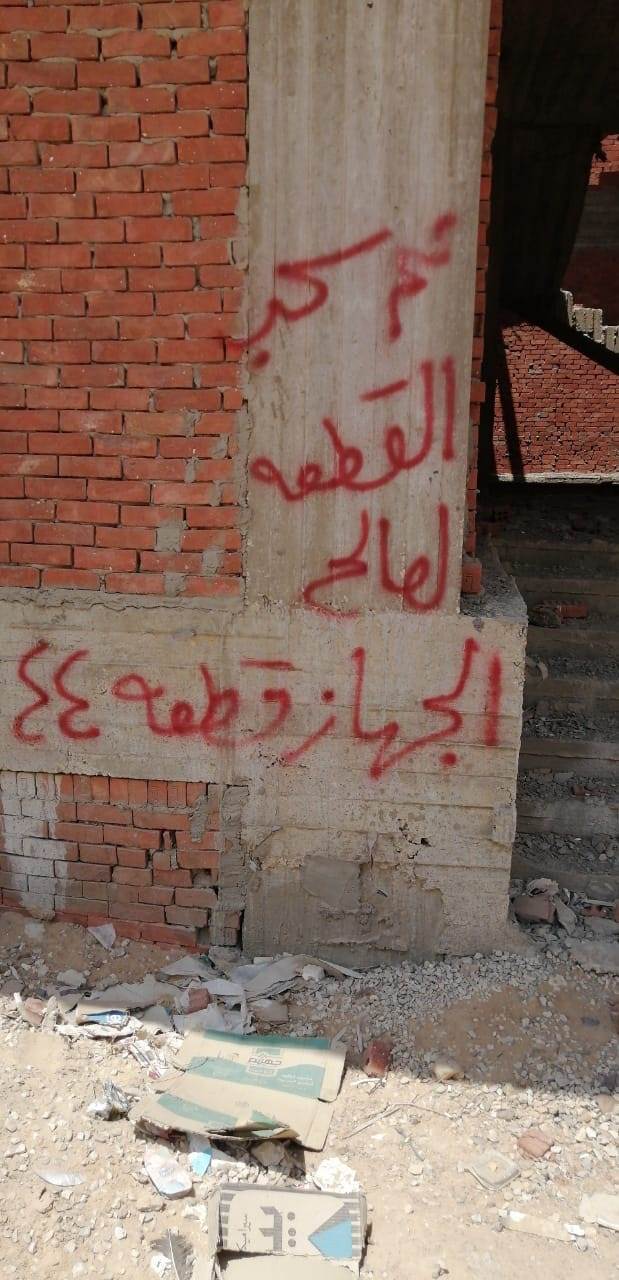 تم سحب
القطعه
لصالح
الجهاز قطعه ٤٤